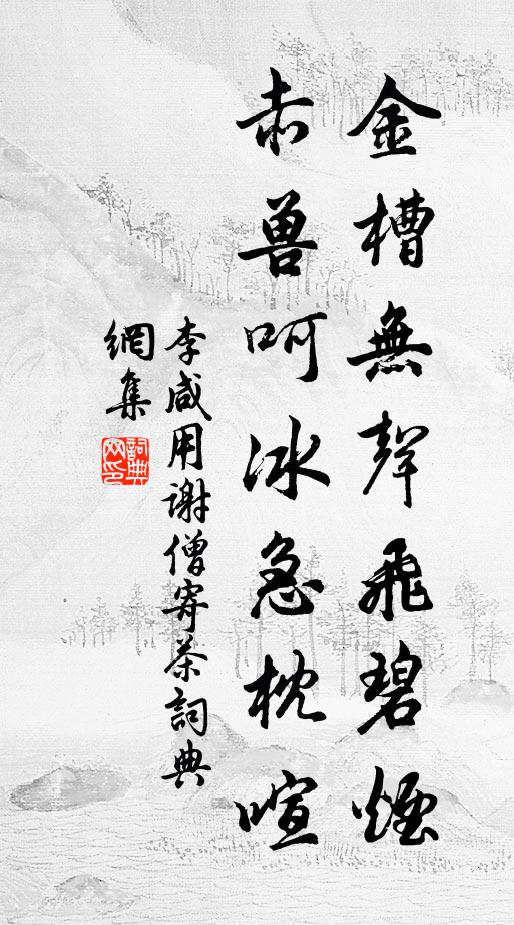 金槽無聲飛碧煙
赤兽呵冰急枕喧
李咸用谢僧寄茶詞典
網集
詞典
网印